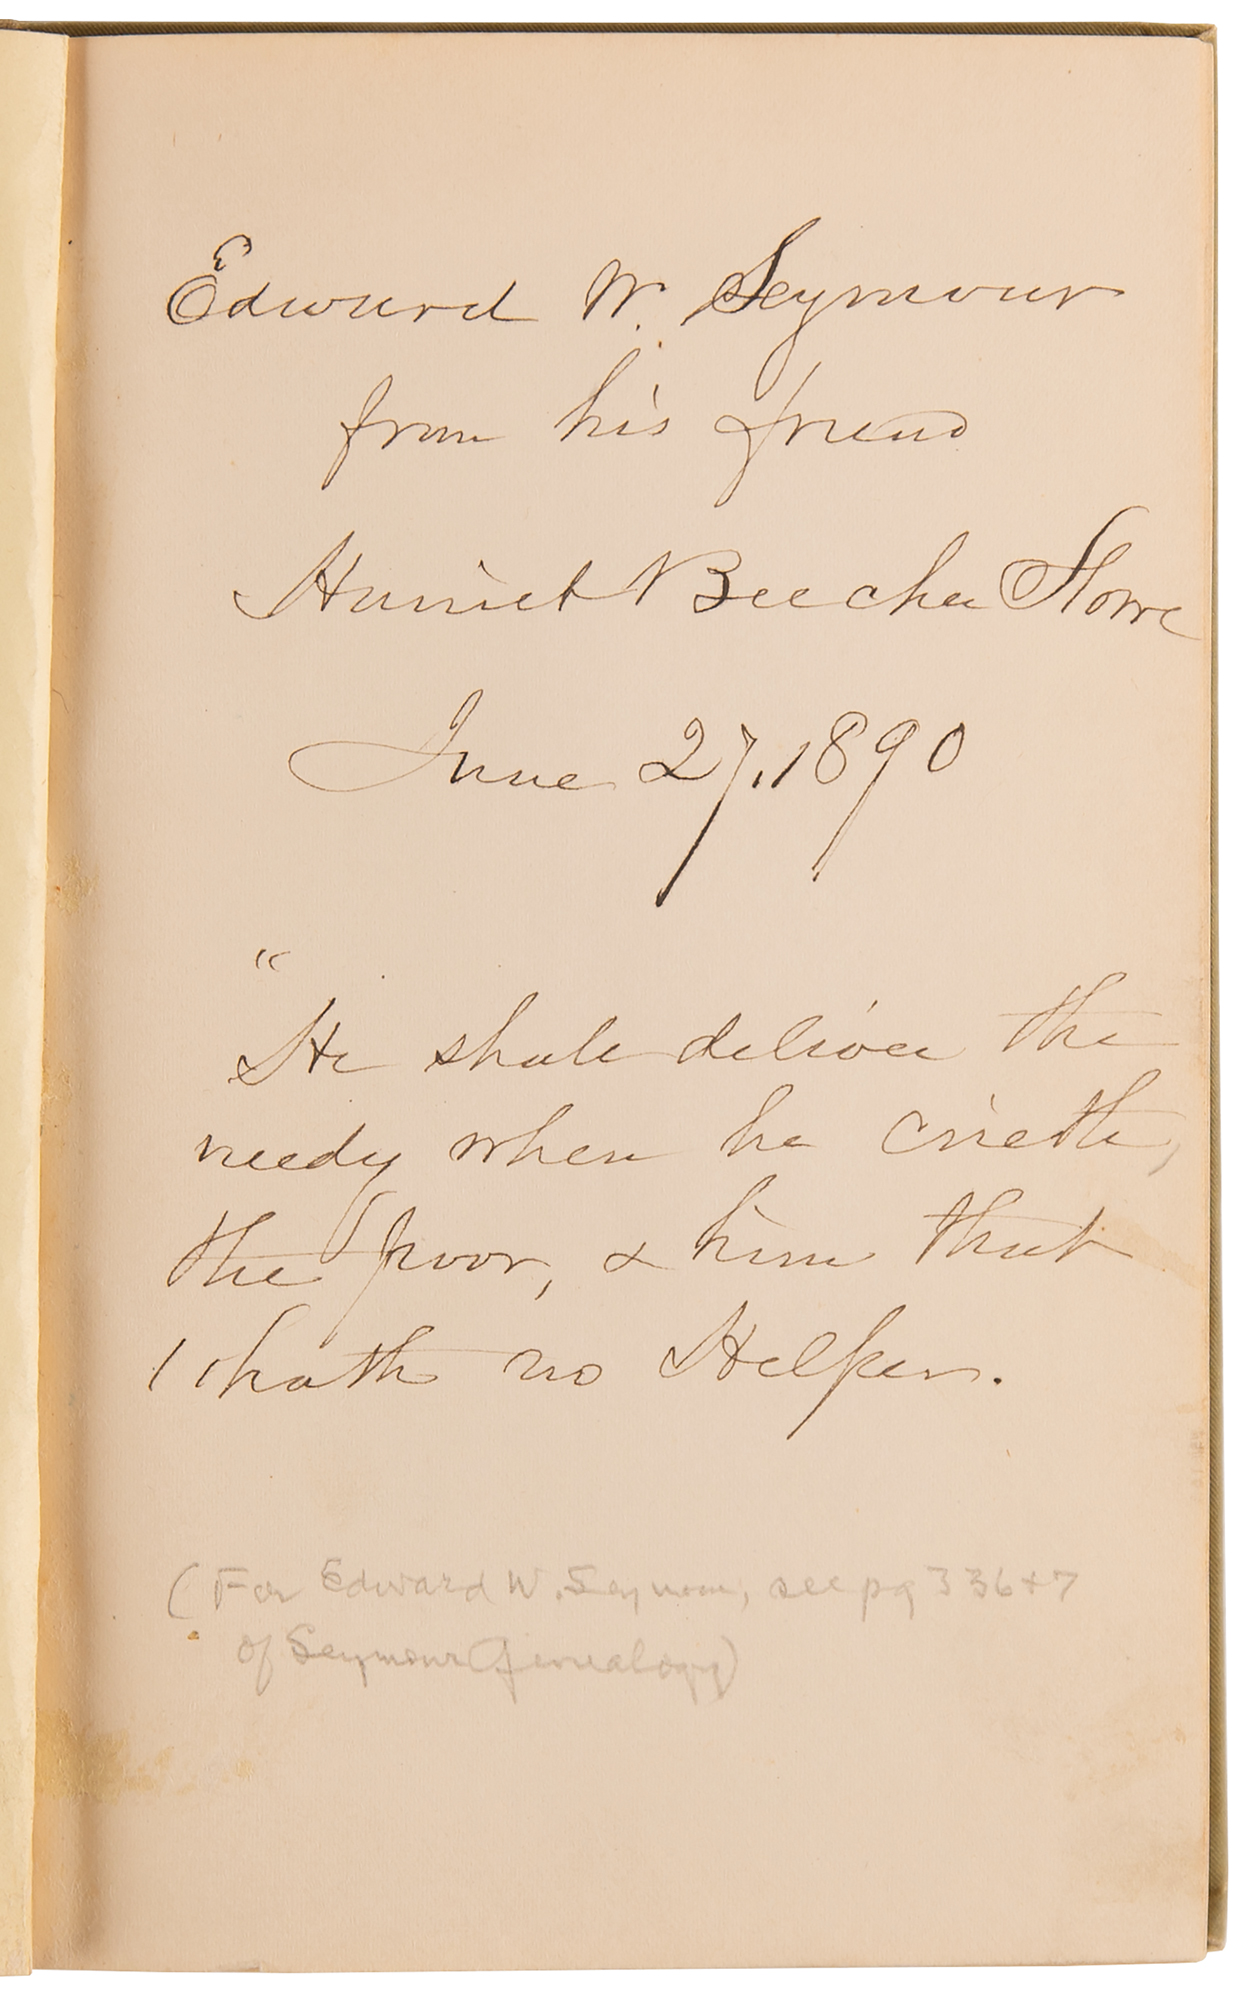 Edward W. Seymour
from his friend
Harriet Beecher Stowe
June 27, 1890
"
He shall deliver the
needy when he crieth,
the poor, & him that
hath no Helper.
(For Edward W. Seymour, see pg 336+7
of Seymour Genealogy)